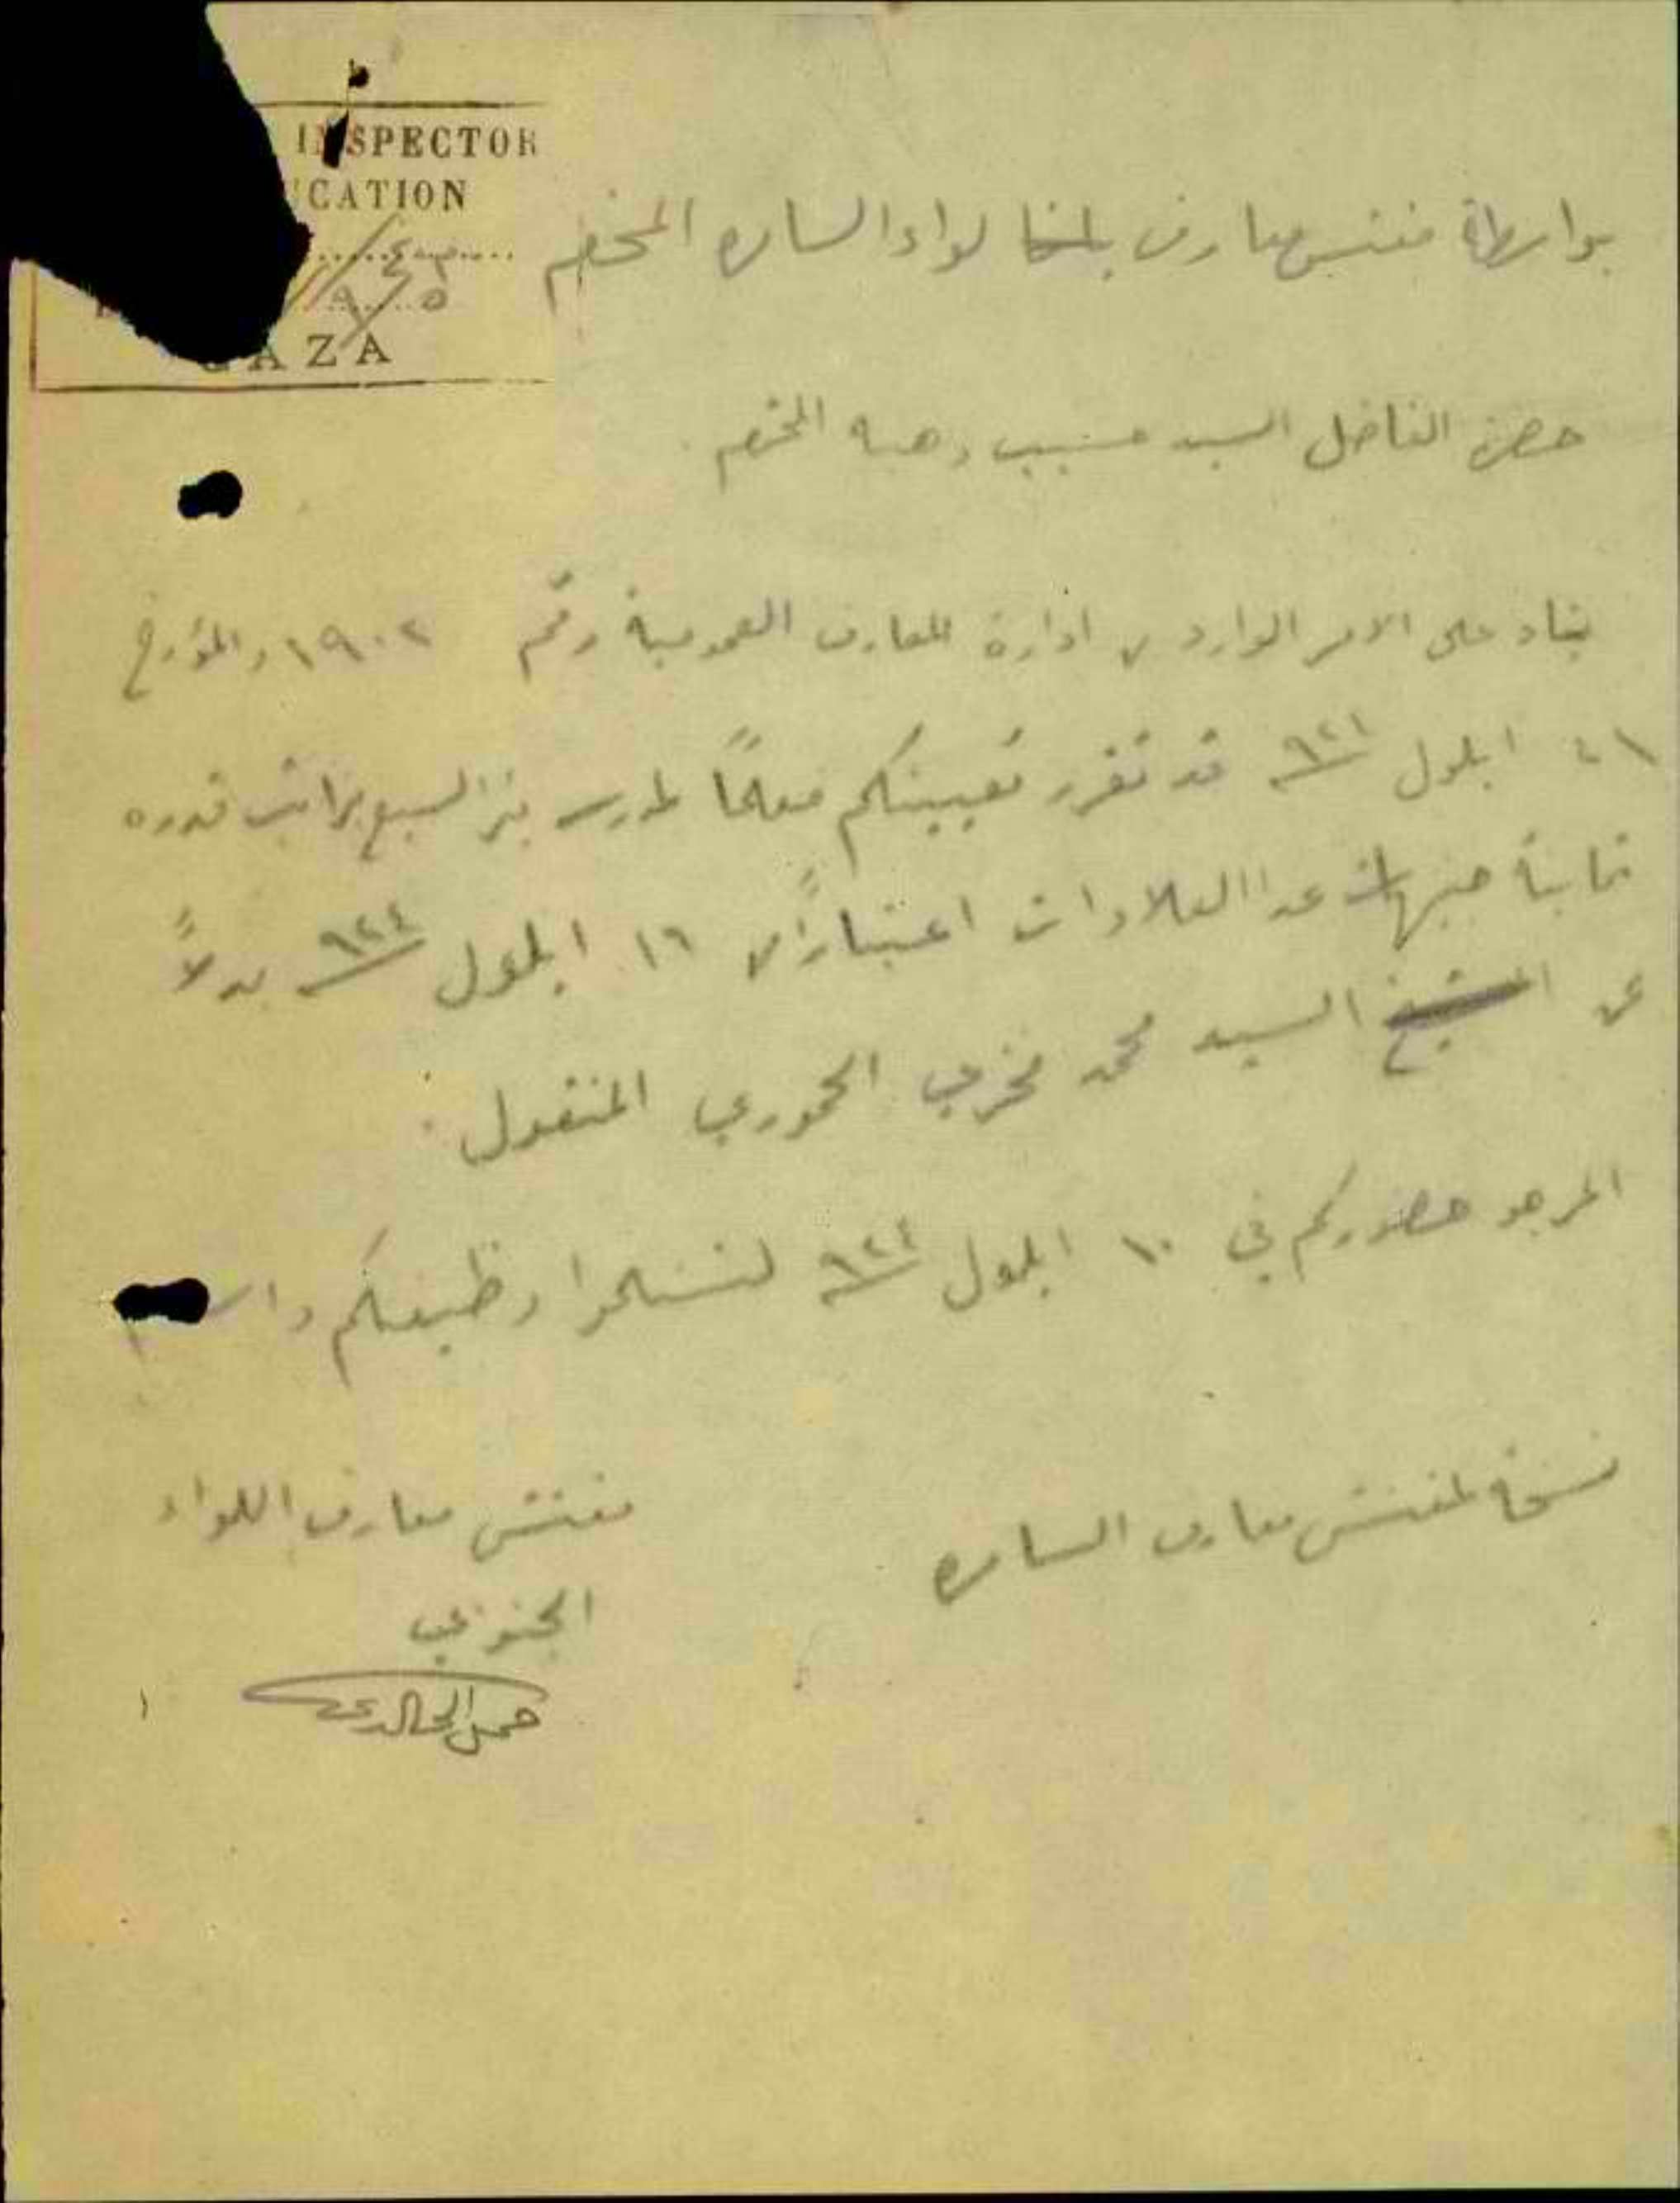 INSPECTOR
UCATION
GAZA
بواسطة مفتش معارف لواء السامره المحترم
حضرة الفاضل السيد حسيب وهبه المحترم
بناء على الامر الوارد من ادارة المعارف العمومية رقم ١٩٠٢ والمؤرخ
ايلول قد تقرر تعيينكم معلمًا لمدرسة بئر السبع براتب قدره
ثمانية جنيهات عدا العلاوات اعتبارًا من ١٦ ايلول ٩٢٤ بدلاً
عن الشيخ السيد محمد فخري الحموري المنقول .
المرجو حضوركم في ١٠ ايلول ٩٢٤ لتستلموا وظيفتكم
نسخة لمفتش معارف السامره
مفتش معارف اللواء
الجنوبي
الخالدي